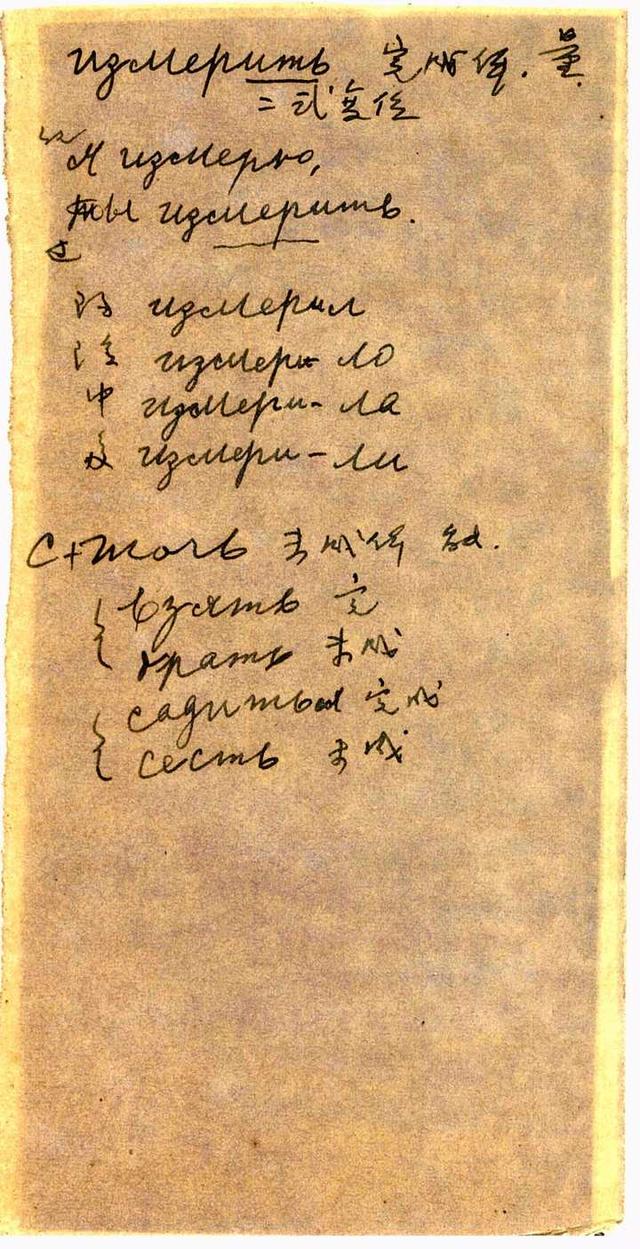 измерить 完成体. 量
二式变位
Я измерю,
ты измерить.
过
阳 измерил
измери- ло
中 измери- ла
复 измери-ли
с+ 未成体
взять 完
брать 未成
садиться 完成
сесть 未成